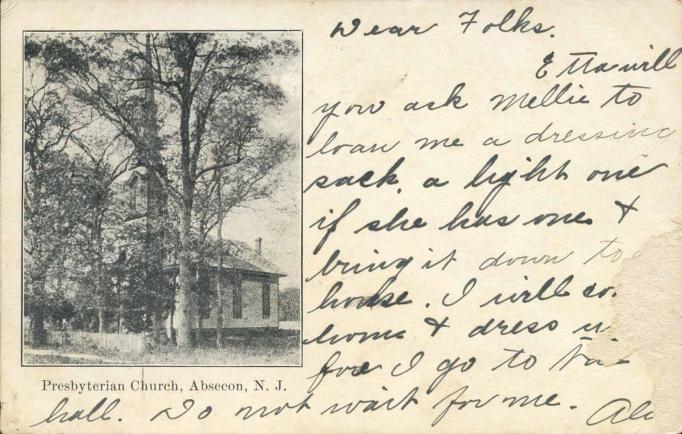 Dear Folks.
Etta will
you ask Mellie to
loan me a dressing
sack, a light one
if she has one &
bring it down to
house. I will co
home & dress u
fore I go to
hall. Do not wait for me.
Presbyterian Church, Absecon, N. J.